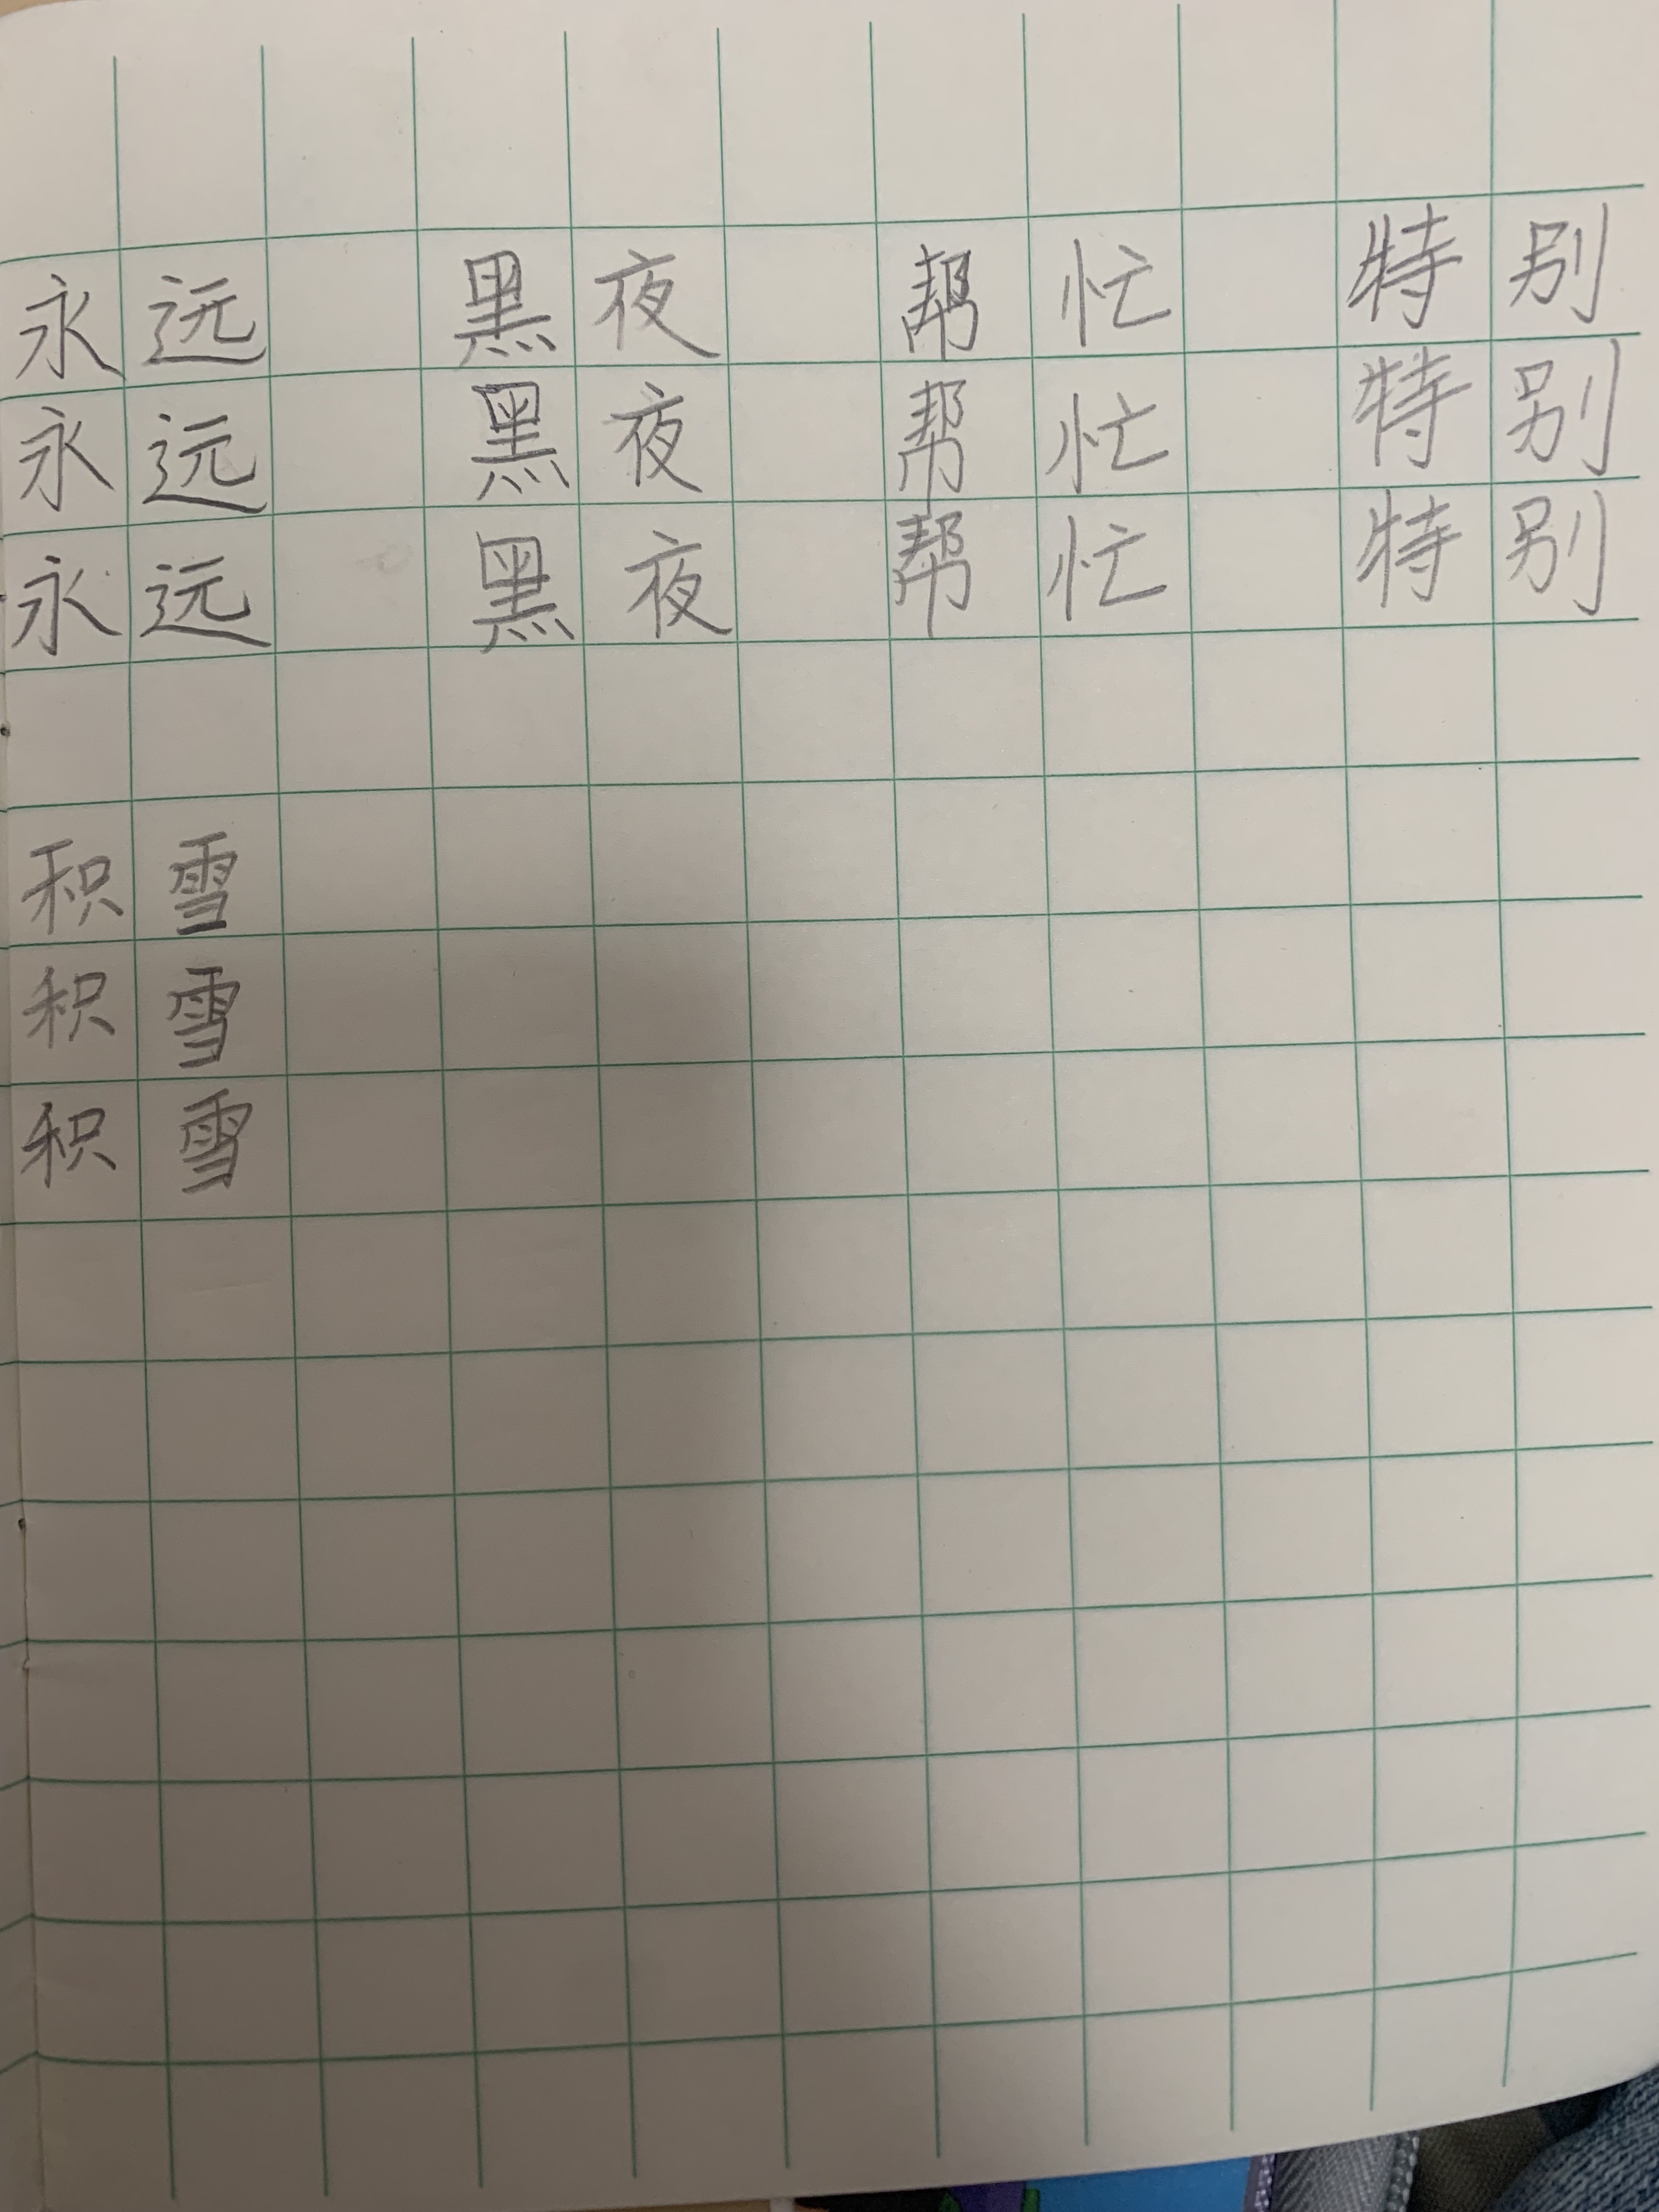 永远 黑夜 帮忙 特别
永远 黑夜 帮忙 特别
永远 黑夜 帮忙 特别
积雪
积雪
积雪